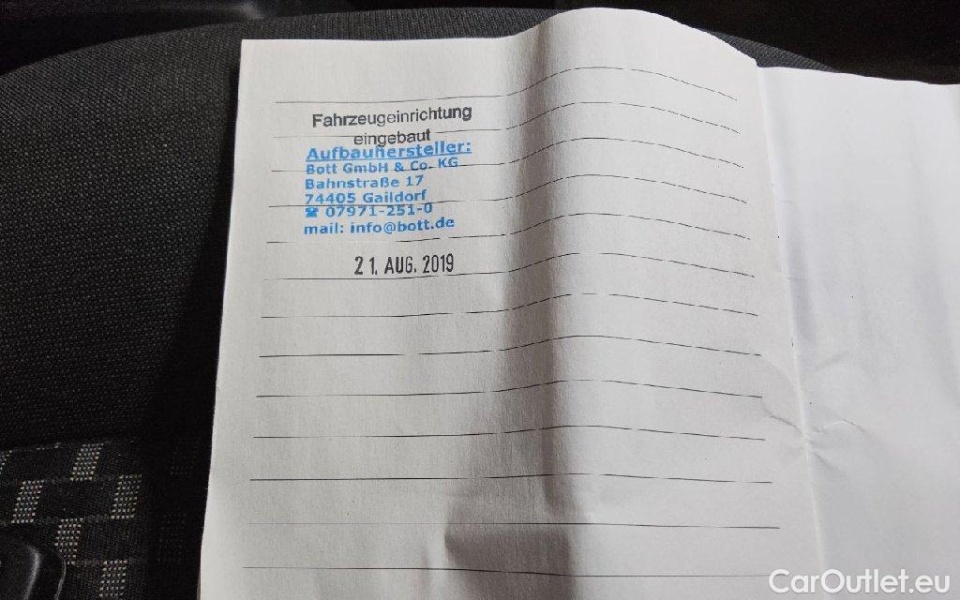 Fahrzeugeinrichtung
eingebaut
Aufbauhersteller:
Bott GmbH & Co. KG
Bahnstraße 17
74405 Gaildorf
☎ 07971-251-0
mail: info@bott.de
21. AUG. 2019
CarOutlet.eu